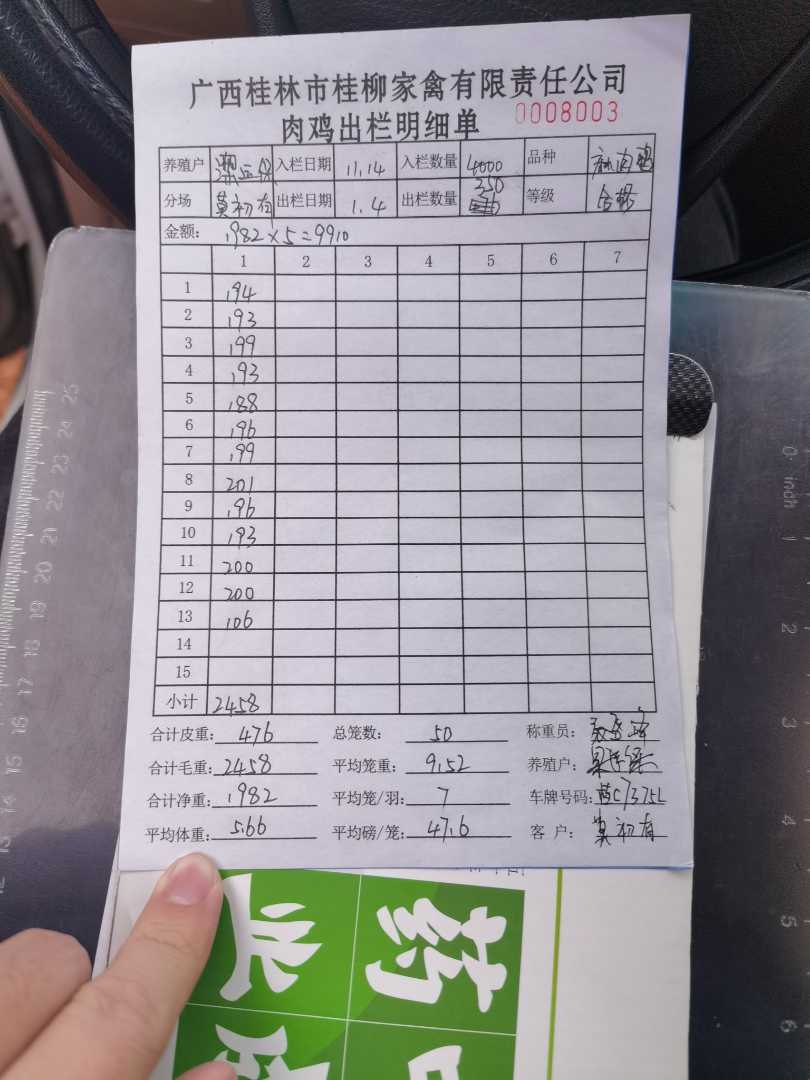 广西桂林市桂柳家禽有限责任公司
肉鸡出栏明细单 0008003
养殖户 入栏日期 11.14 入栏数量 4000 品种
分场 莫初有 出栏日期 1.4 出栏数量 350 等级 合格
金额: 1982×5=9910
1 2 3 4 5 6 7
1 194
2 193
3 199
4 193
5 188
6 196
7 199
8 201
9 196
10 193
11 200
12 200
13 106
14
15
小计 2458
合计皮重: 476 总笼数: 50 称重员:
合计毛重: 2458 平均笼重: 9.52 养殖户:
合计净重: 1982 平均笼/羽: 7 车牌号码:
平均体重: 5.66 平均磅/笼: 47.6 客户: 莫初有
25
24
23
22
21
20
19
18
17
16
15
14
13
12
0 inch
1
2
3
4
5
6
药